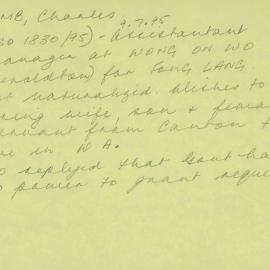 MB, Charles
9.7.95
SO 1830/95) - Assistant
anager at WONG ON WO
eraldton) for FONG LANG.
t naturalized. Wishes to
ing wife, son & fema
rvant from Canton t
ve in W A.
O replyed that Govt ha
o power to grant reque